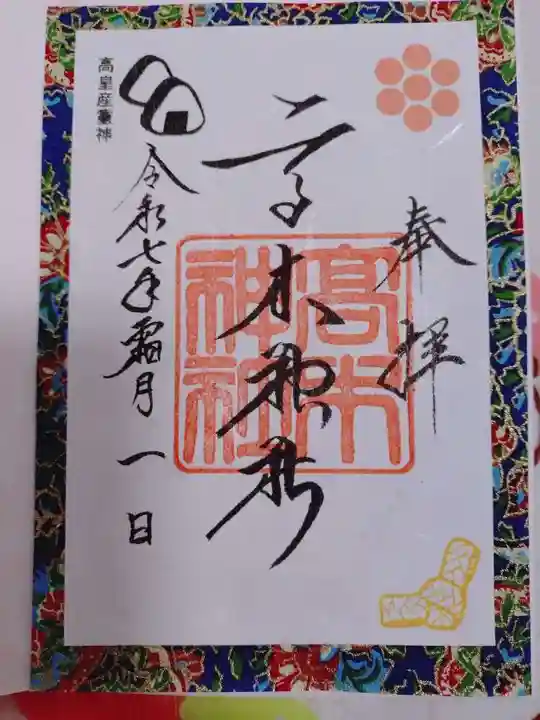 奉拝
高木神社
高木神社
令和七年霜月一日
高皇産霊神